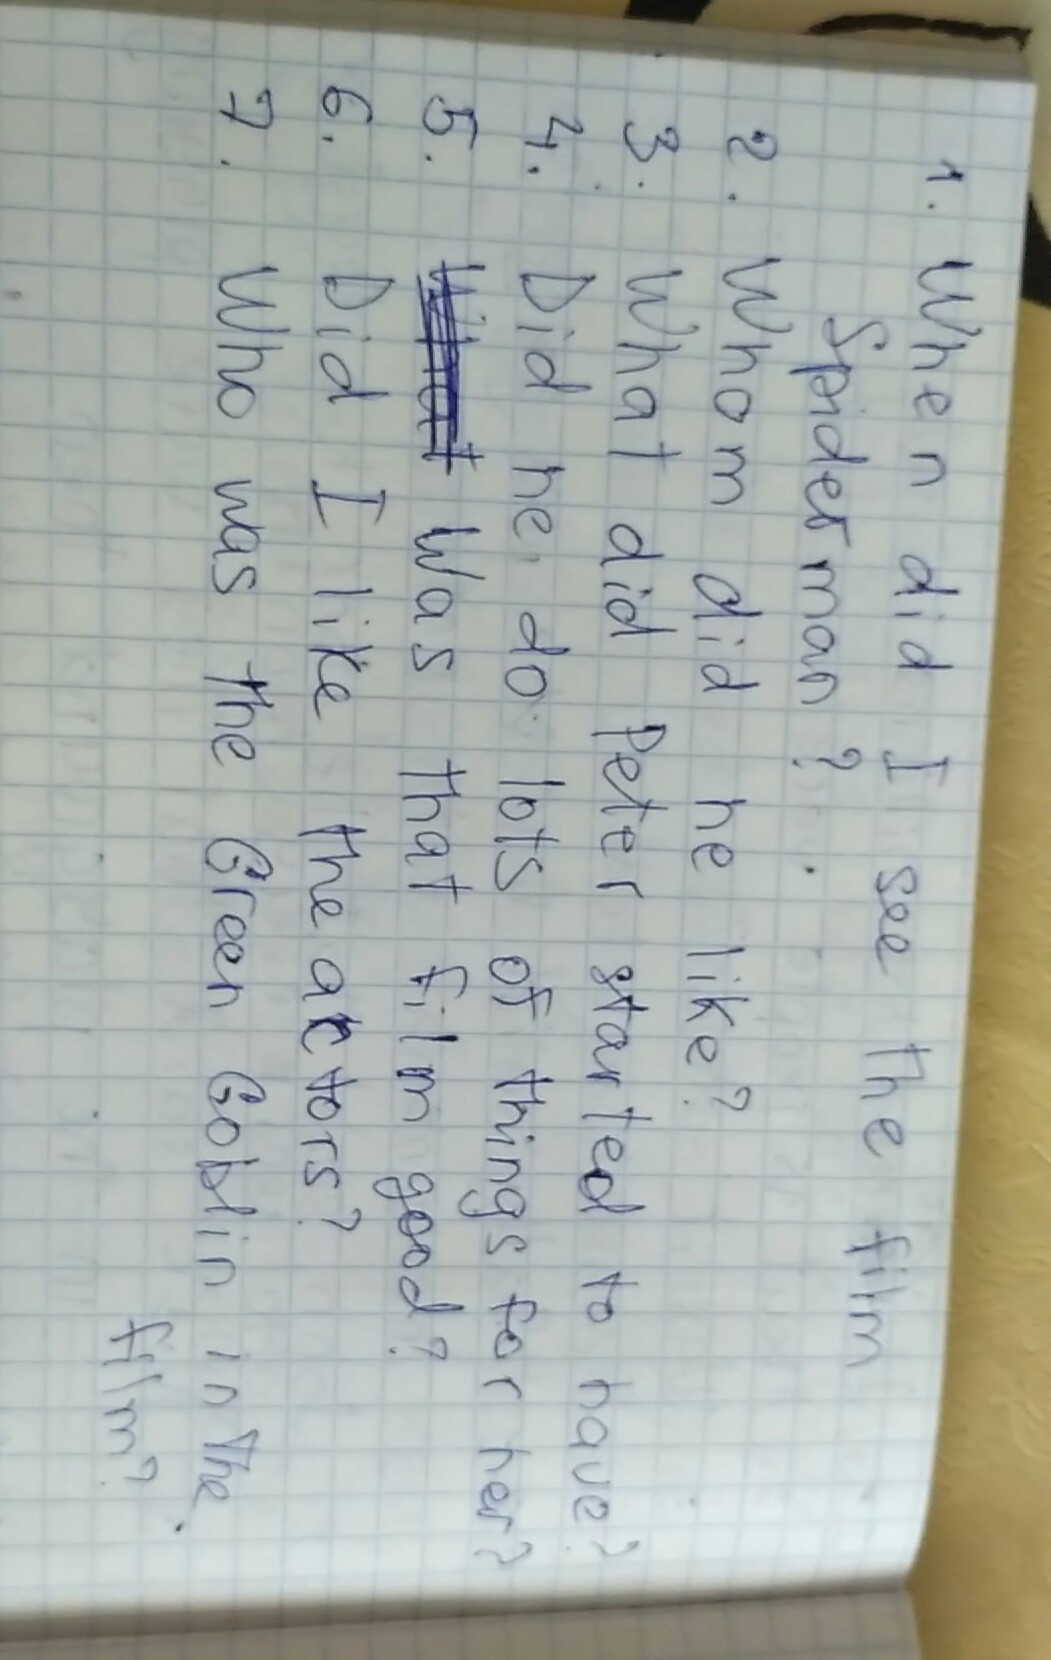 1. When did I see the film
Spiderman?
2. Whom did he like?
3. What did Peter started to have?
4. Did he do lots of things for her?
5. Was that film good?
6. Did I like the actors?
7. Who was the Green Goblin in the
film?